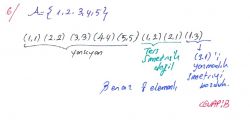 6/ A={1,2,3,4,5}
(1,1) (2,2) (3,3) (4,4) (5,5) (1,2) (2,1) (1,3)
yansıyan
Ters
Simetrik
değil
(3,1)'i
yazmadık
Simetriyi
bozduk.
Benaz 8 elemanlı
CEVAP:B